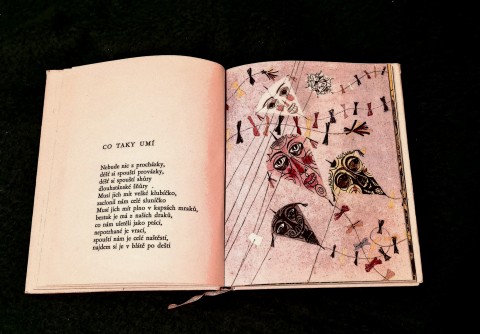 CO TAKY UMÍ
Nebude nic z procházky,
déšť si spouští provázky,
déšť si spouští šňůry
dlouhatánské šňůry.
Musí jich mít velké klubíčko,
zaclonil nám celé sluníčko
Musí jich mít plno v kapsách mraků,
bestak je má z našich draků,
co nám uletěli jako ptáci,
nepotrhané je vrací,
spouští nám je celé naštěstí,
najdem si je v blátě po dešti